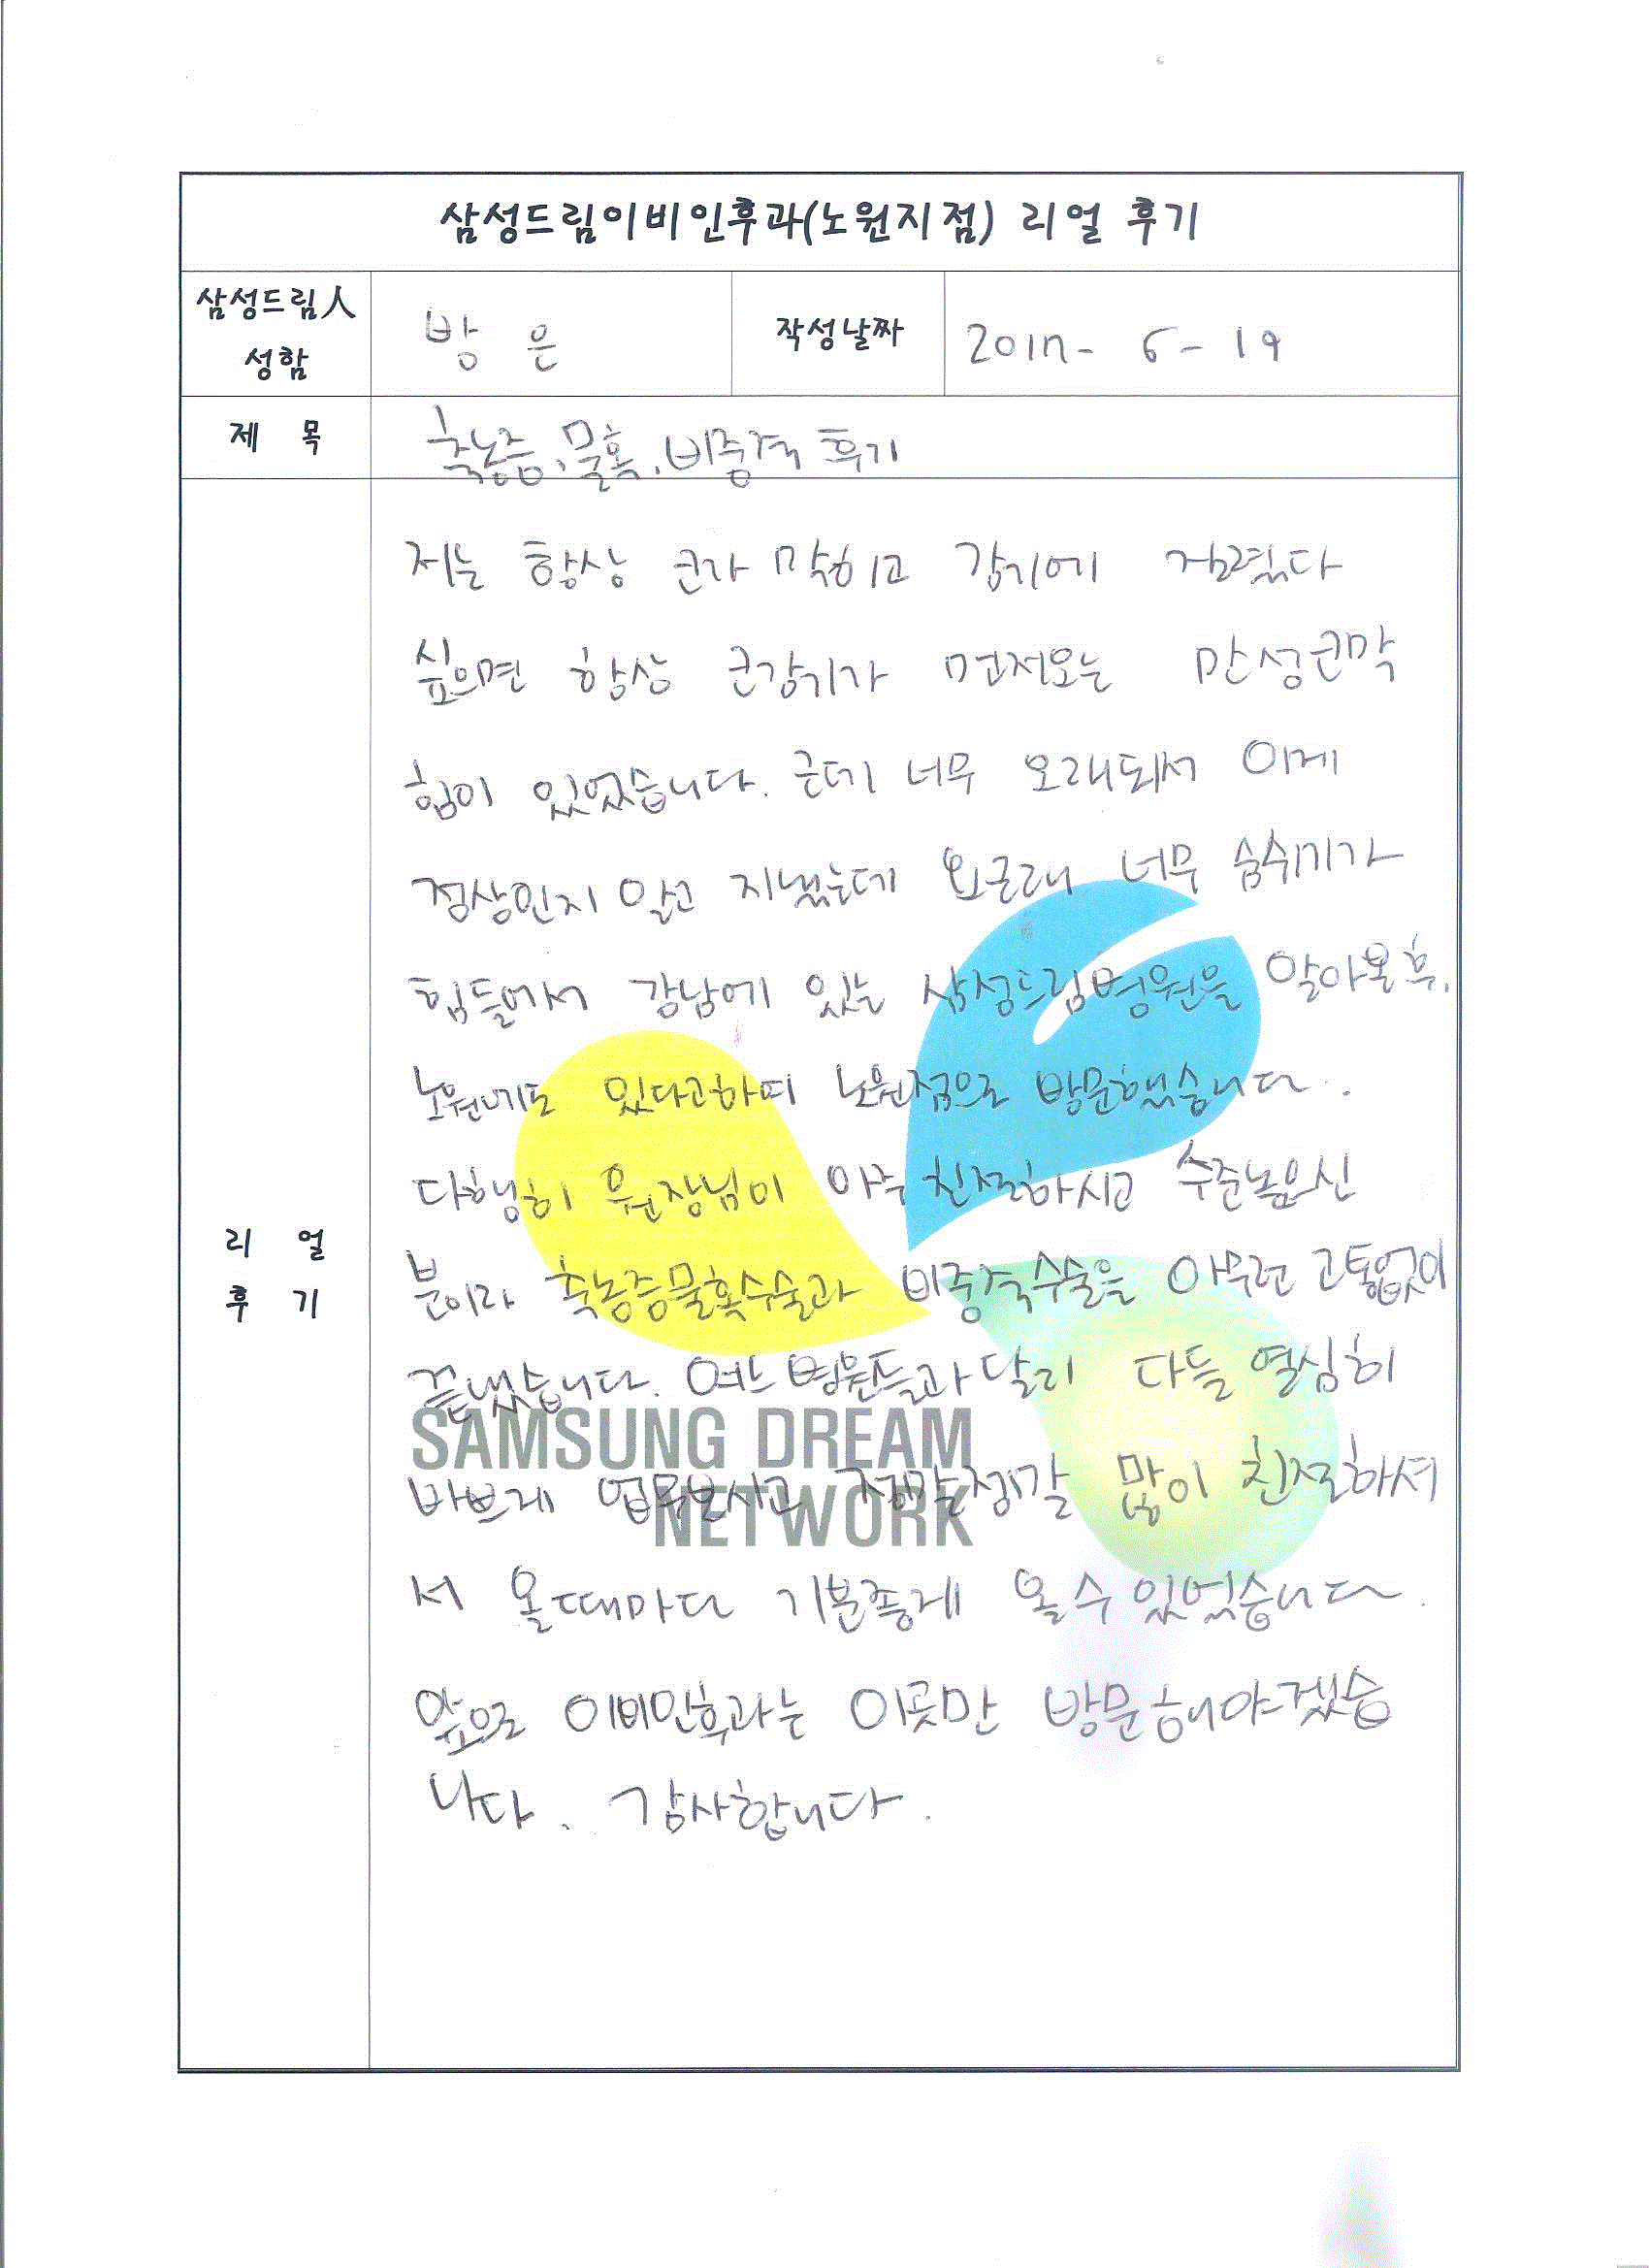 삼성드림이비인후과(노원지점) 리얼 후기
삼성드림人 성함
방 은
작성날짜
2017- 6- 19
제 목
축농증, 물혹, 비중격 후기
리 얼
후 기
저는 항상 코가 막히고 감기에 걸렸다
싶으면 항상 코감기가 먼저오는 만성코막
힘이 있었습니다. 근데 너무 오래되서 이게
정상인지 알고 지냈는데 요근래 너무 숨쉬기가
힘들어서 강남에 있는 삼성드림병원을 알아본후,
노원에도 있다고하여 노원점으로 방문했습니다.
다행히 원장님이 아주 친절하시고 수준높으신
분이라 축농증물혹수술과 비중격수술을 아무런 고통없이
끝냈습니다. 여느 병원들과 달리 다들 열심히
바쁘게 업무보시고 정말정말 많이 친절하셔
서 올때마다 기분좋게 올수 있었습니다.
앞으로 이비인후과는 이곳만 방문해야겠습
니다. 감사합니다.
SAMSUNG DREAM
NETWORK